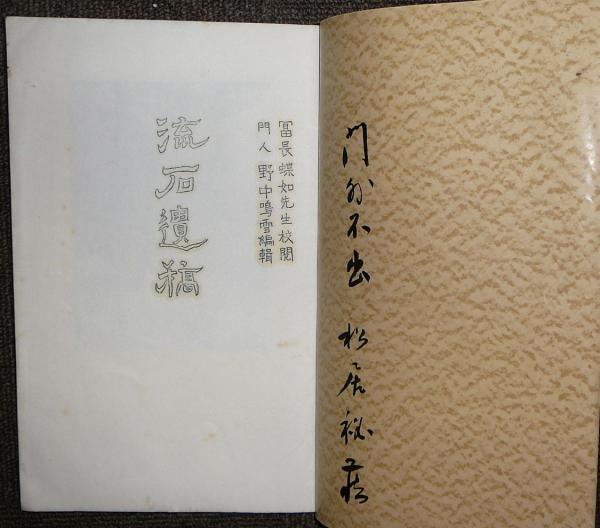 門外不出 松居秘蔵
冨長蝶如先生校閲
門人 野中鳴雪編輯
流石遺稿